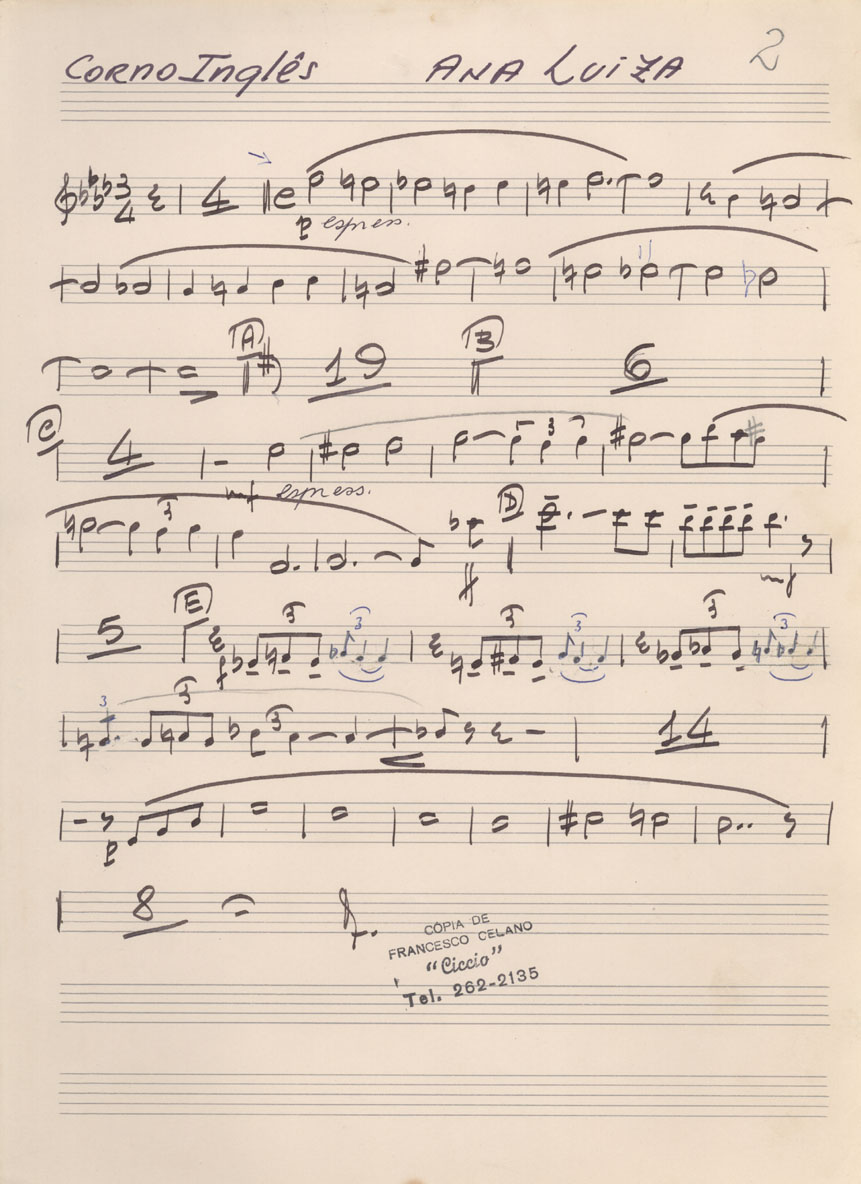 Corno Inglês ANA LUIZA 2
3
4 4
p espress.
A 19 B 6
C 4 3
mf espress.
3 D
f mf
5 E 3 3 3 3 3 3
f
3 3 3 14
p
8
CÓPIA DE
FRANCESCO CELANO
"Ciccio"
Tel. 262-2135